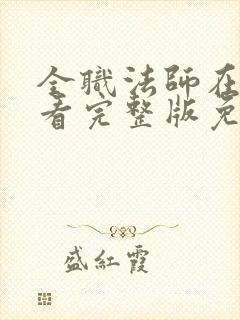 全職法師在
看完整版免
盛紅霞